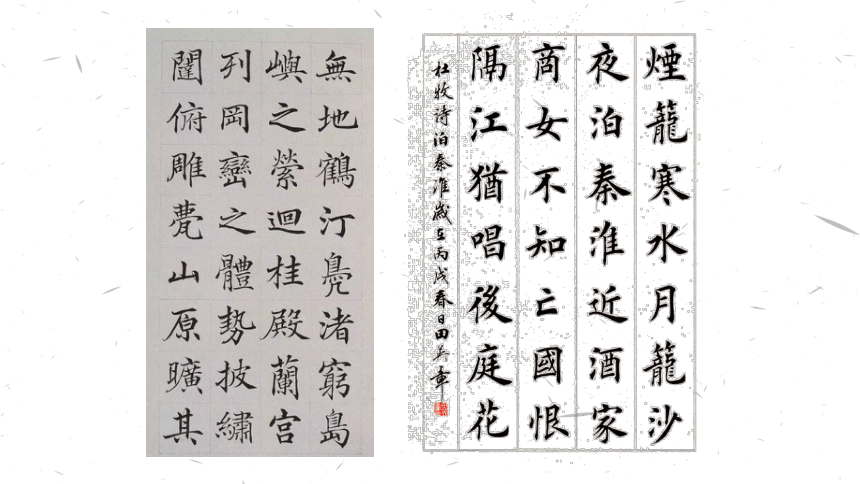 無地鶴汀鳧渚窮島
嶼之縈迴桂殿蘭宮
列岡巒之體勢披繡
闥俯雕甍山原曠其
煙籠寒水月籠沙
夜泊秦淮近酒家
商女不知亡國恨
隔江猶唱後庭花
杜牧詩泊秦淮歲在丙戌春日田英章